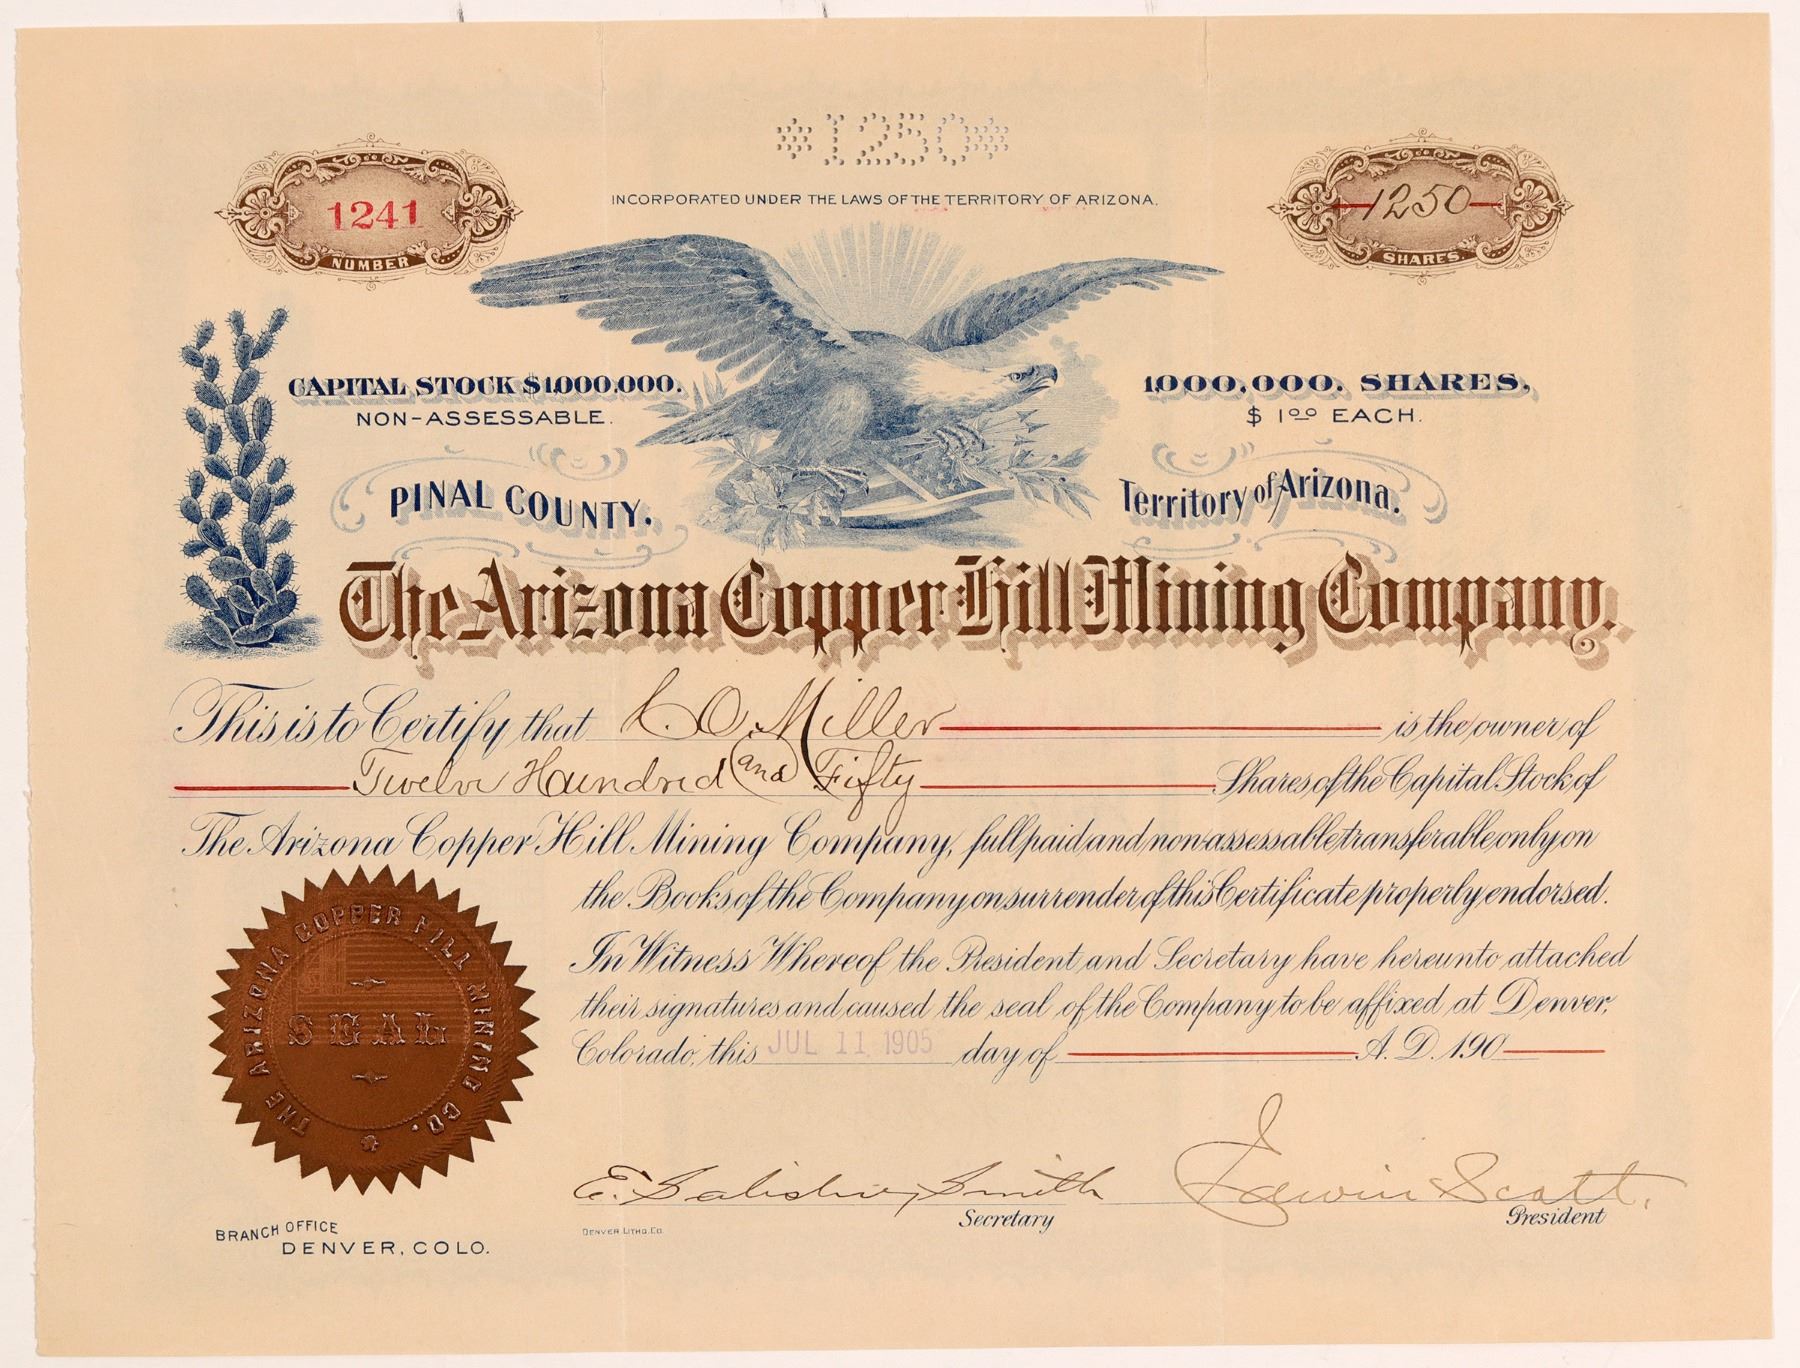 *1250*
1241
NUMBER
INCORPORATED UNDER THE LAWS OF THE TERRITORY OF ARIZONA.
1250
SHARES.
CAPITAL STOCK $1,000,000.
NON-ASSESSABLE.
1,000,000. SHARES,
$1 00 EACH.
PINAL COUNTY.
Territory of Arizona.
The Arizona Copper Hill Mining Company.
This is to Certify that L. O. Miller is the owner of
Twelve Hundred and Fifty Shares of the Capital Stock of
The Arizona Copper Hill Mining Company, full paid and non-assessable transferable only on
the Books of the Company on surrender of this Certificate properly endorsed.
In Witness Whereof the President and Secretary have hereunto attached
their signatures and caused the seal of the Company to be affixed at Denver,
Colorado, this JUL 11 1905 day of A.D. 190
THE ARIZONA COPPER HILL MINING CO.
SEAL
E. Salisbury Smith
Secretary
Irwin Scott.
President
BRANCH OFFICE
DENVER, COLO.
DENVER LITHO. CO.